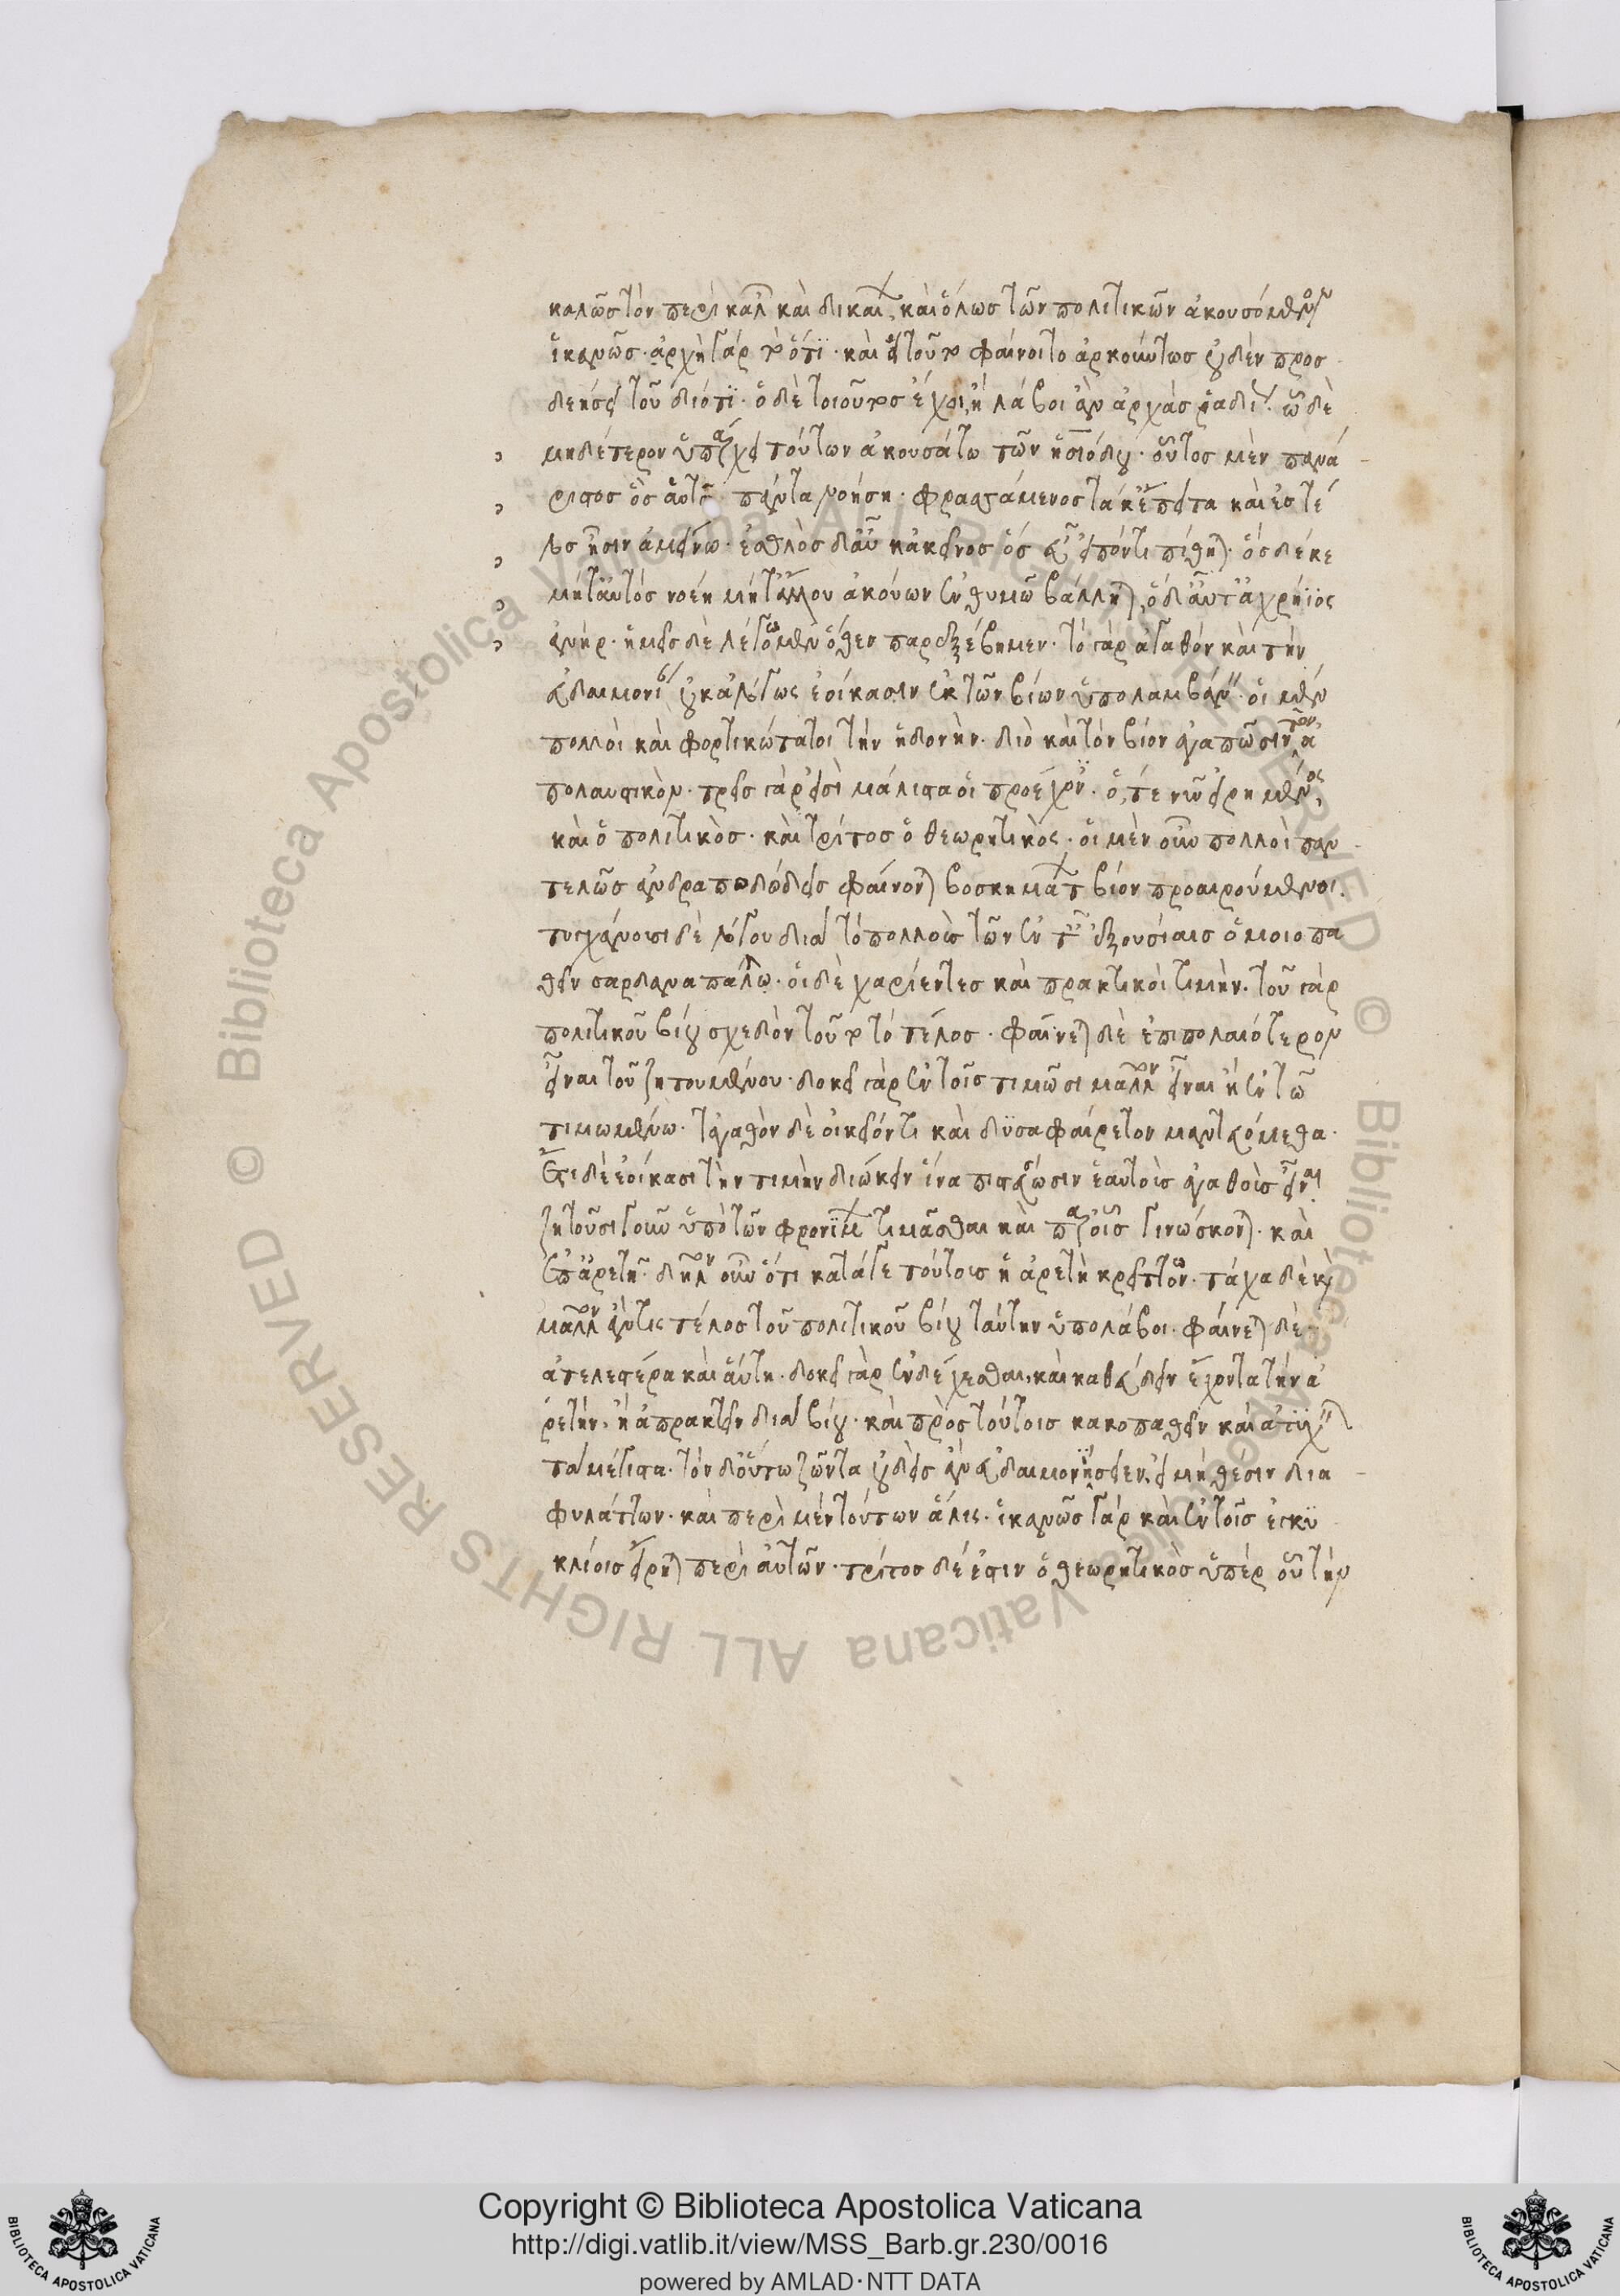 καλῶς τὸν περὶ καλῶν καὶ δικαίων καὶ ὅλως τῶν πολιτικῶν ἀκουσόμενον
ἱκανῶς· ἀρχὴ γὰρ τὸ ὅτι· καὶ εἰ τοῦτο φαίνοιτο ἀρκούντως οὐδὲν προσ
δεήσει τοῦ διότι· ὁ δὲ τοιοῦτος ἔχοι ἢ λάβοι ἂν ἀρχὰς ῥαδίως· ᾧ δὲ
μηδέτερον ὑπάρχει τούτων ἀκουσάτω τῶν ἡσιόδου· οὗτος μὲν πανά
ριστος ὃς αὐτὸς πάντα νοήση· φρασσάμενος τά κ' ἔπειτα καὶ ἐς τέ
λος ἦσιν ἀμείνω· ἐσθλὸς δ' αὖ κἀκεῖνος ὃς εὖ εἰπόντι πίθηται· ὃς δέ κε
μήτ' αὐτὸς νοέη μήτ' ἄλλου ἀκούων ἐν θυμῶ βάλληται, ὁ δ' αὖτ' ἀχρήϊος
ἀνήρ· ἡμεῖς δὲ λέγωμεν ὅθεν παρεξέβημεν· τὸ γὰρ ἀγαθὸν καὶ τὴν
εὐδαιμονίαν οὐκ ἀλόγως ἐοίκασιν ἐκ τῶν βίων ὑπολαμβάνειν· οἱ μὲν
πολλοὶ καὶ φορτικώτατοι τὴν ἡδονήν· διὸ καὶ τὸν βίον ἀγαπῶσιν τὸν ἀ
πολαυστικόν· τρεῖς γάρ εἰσι μάλιστα οἱ προέχοντες· ὅ, τε νῦν εἰρημένος,
καὶ ὁ πολιτικὸς· καὶ τρίτος ὁ θεωρητικός· οἱ μὲν οὖν πολλοὶ παν
τελῶς ἀνδραποδώδεις φαίνονται βοσκημάτων βίον προαιρούμενοι·
τυγχάνουσι δὲ λόγου διὰ τὸ πολλοὺς τῶν ἐν ταῖς ἐξουσίαις ὁμοιοπα
θεῖν σαρδαναπάλλω· οἱ δὲ χαρίεντες καὶ πρακτικοὶ τιμήν· τοῦ γὰρ
πολιτικοῦ βίου σχεδὸν τοῦτο τὸ τέλος· φαίνεται δὲ ἐπιπολαιότερον
εἶναι τοῦ ζητουμένου· δοκεῖ γὰρ ἐν τοῖς τιμῶσι μᾶλλον εἶναι ἢ ἐν τῶ
τιμωμένω· τἀγαθὸν δὲ οἰκεῖόν τι καὶ δυσαφαίρετον μαντευόμεθα·
ἔτι δὲ ἐοίκασι τὴν τιμὴν διώκειν ἵνα πιστεύωσιν ἑαυτοὺς ἀγαθοὺς εἶναι
ζητοῦσι γοῦν ὑπὸ τῶν φρονίμων τιμᾶσθαι καὶ παρ' οἷς γινώσκονται· καὶ
ἐπ' ἀρετῆ· δῆλον οὖν ὅτι κατά γε τούτοις ἡ ἀρετὴ κρείττων· τάχα δὲ καὶ
μᾶλλον ἄν τις τέλος τοῦ πολιτικοῦ βίου ταύτην ὑπολάβοι· φαίνεται δὲ
ἀτελεστέρα καὶ αὕτη· δοκεῖ γὰρ ἐνδέχεσθαι, καὶ καθεύδειν ἔχοντα τὴν ἀ
ρετήν· ἢ ἀπρακτεῖν διὰ βίου· καὶ πρὸς τούτοις κακοπαθεῖν καὶ ἀτυχεῖν
τὰ μέγιστα· τὸν δ' οὕτω ζῶντα οὐδεὶς ἂν εὐδαιμονήσειεν, εἰ μὴ θέσιν δια
φυλάττων· καὶ περὶ μὲν τούτων ἅλις· ἱκανῶς γὰρ καὶ ἐν τοῖς ἐγκυ
κλίοις εἴρηται περὶ αὐτῶν· τρίτος δέ ἐστιν ὁ θεωρητικὸς ὑπὲρ οὗ τὴν
Copyright © Biblioteca Apostolica Vaticana
http://digi.vatlib.it/view/MSS_Barb.gr.230/0016
powered by AMLAD·NTT DATA
BIBLIOTECA APOSTOLICA VATICANA
BIBLIOTECA APOSTOLICA VATICANA
© Biblioteca Apostolica Vaticana ALL RIGHTS RESERVED © Biblioteca Apostolica Vaticana ALL RIGHTS RESERVED